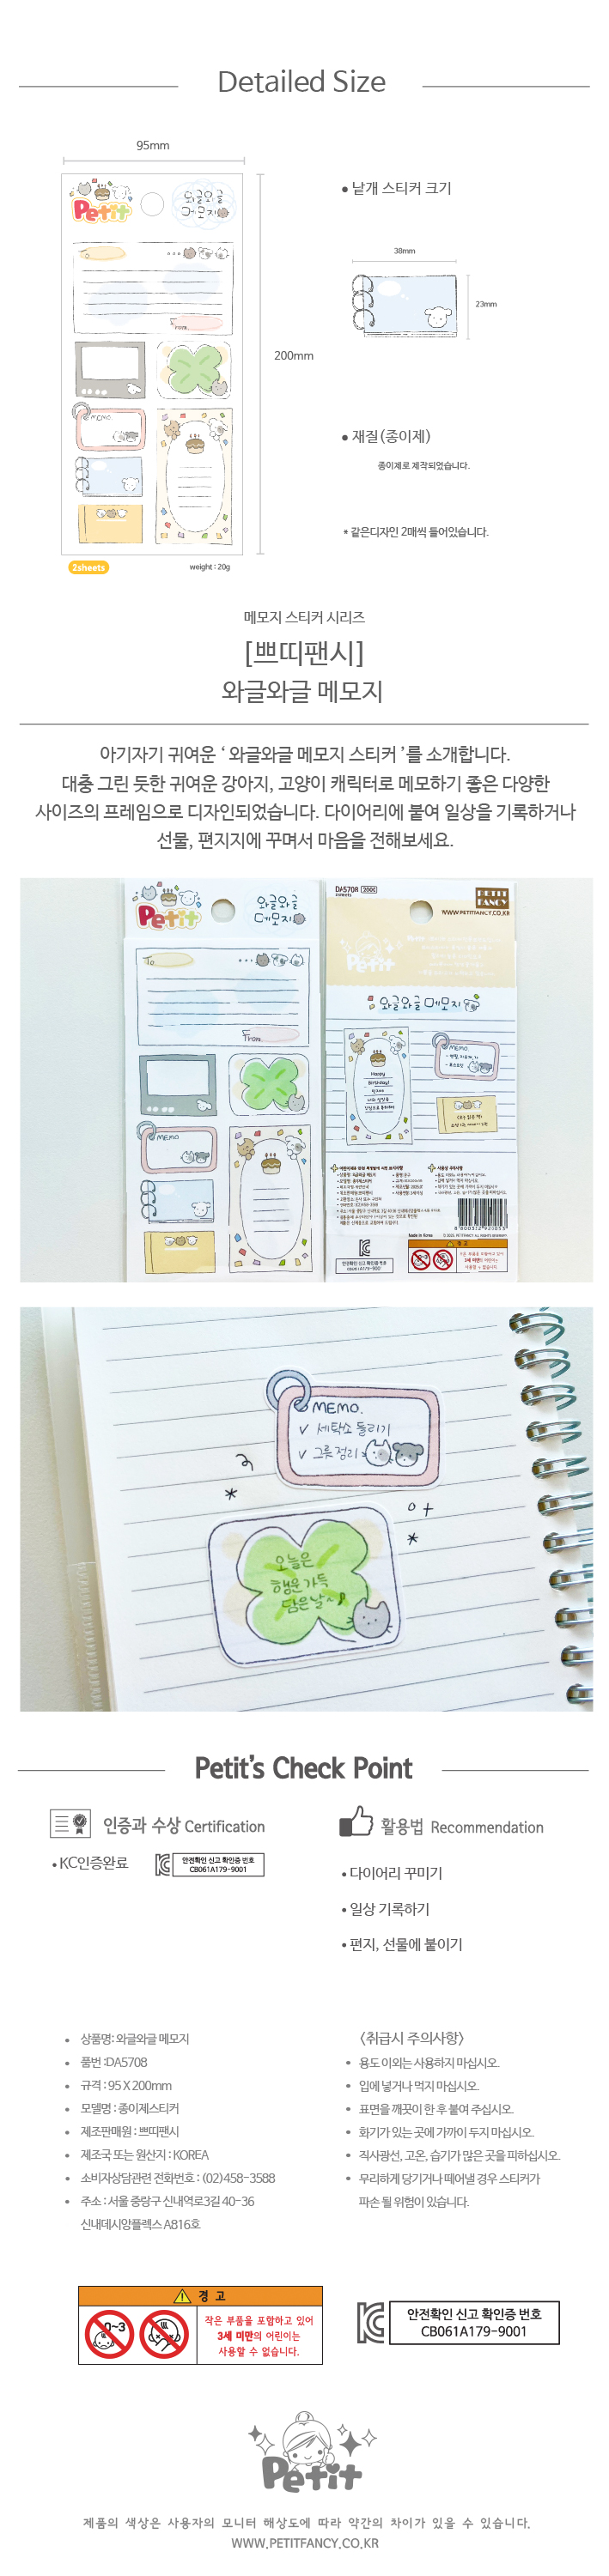 Detailed Size
95mm
Petit
와글와글
메모지
• 낱개 스티커 크기
38mm
23mm
200mm
From.
MEMO
• 재질(종이제)
종이제로 제작되었습니다.
* 같은디자인 2매씩 들어있습니다.
2sheets
weight : 20g
메모지 스티커 시리즈
[쁘띠팬시]
와글와글 메모지
아기자기 귀여운 ‘ 와글와글 메모지 스티커 ’를 소개합니다.
대충 그린 듯한 귀여운 강아지, 고양이 캐릭터로 메모하기 좋은 다양한
사이즈의 프레임으로 디자인되었습니다. 다이어리에 붙여 일상을 기록하거나
선물, 편지지에 꾸며서 마음을 전해보세요.
Petit
와글와글
메모지
To.
From.
MEMO
DA5708
2000
2sheets
PETIT
FANCY
WWW.PETITFANCY.CO.KR
Petit
와글와글 메모지
Happy
Birthday!
MEMO.
Made in Korea
경 고
안전확인 신고 확인증 번호
CB061A179-9001
MEMO.
✓ 세탁소 들리기
✓ 그릇 정리
오늘은
행운 가득
담은 날
Petit’s Check Point
인증과 수상 Certification
• KC인증완료
안전확인 신고 확인증 번호
CB061A179-9001
활용법 Recommendation
• 다이어리 꾸미기
• 일상 기록하기
• 편지, 선물에 붙이기
• 상품명: 와글와글 메모지
• 품번 :DA5708
• 규격 : 95 X 200mm
• 모델명 : 종이제스티커
• 제조판매원 : 쁘띠팬시
• 제조국 또는 원산지 : KOREA
• 소비자상담관련 전화번호 : (02)458-3588
• 주소 : 서울 중랑구 신내역로3길 40-36
신내데시앙플렉스 A816호
<취급시 주의사항>
• 용도 이외는 사용하지 마십시오.
• 입에 넣거나 먹지 마십시오.
• 표면을 깨끗이 한 후 붙여 주십시오.
• 화기가 있는 곳에 가까이 두지 마십시오.
• 직사광선, 고온, 습기가 많은 곳을 피하십시오.
• 무리하게 당기거나 떼어낼 경우 스티커가
파손 될 위험이 있습니다.
경 고
0~3
작은 부품을 포함하고 있어
3세 미만의 어린이는
사용할 수 없습니다.
안전확인 신고 확인증 번호
CB061A179-9001
Petit
제품의 색상은 사용자의 모니터 해상도에 따라 약간의 차이가 있을 수 있습니다.
WWW.PETITFANCY.CO.KR